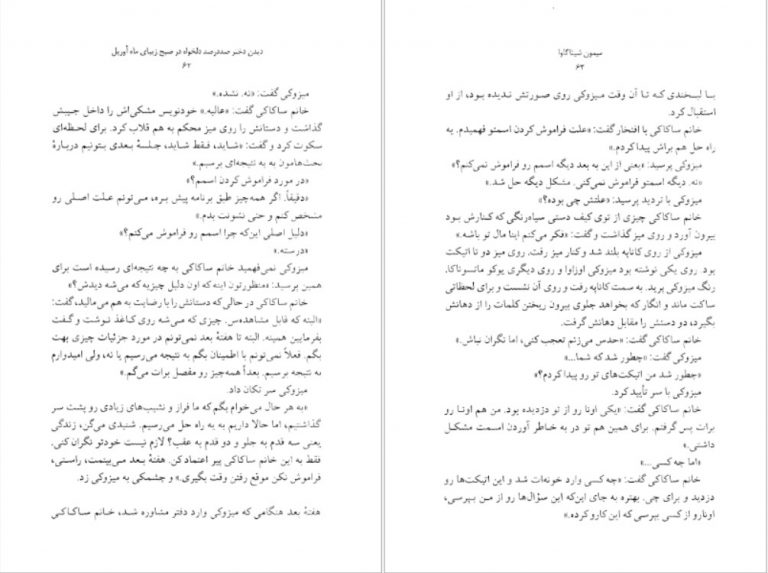 دیدن دختر صددرصد دلخواه در صبح زیبای ماه آوریل
۶۲
میزوکی گفت: «نه. نشده.»
خانم ساکاکی گفت: «عالیه.» خودنویس مشکی‌اش را داخل جیبش
گذاشت و دستانش را روی میز محکم به هم قلاب کرد. برای لحظه‌ای
سکوت کرد و گفت: «شاید، فقط شاید، جلسهٔ بعدی بتونیم دربارهٔ
بحث‌هامون به یه نتیجه‌ای برسیم.»
«در مورد فراموش کردن اسمم؟»
«دقیقاً. اگر همه‌چیز طبق برنامه پیش بره، می‌تونم علت اصلی رو
مشخص کنم و حتی نشونت بدم.»
«دلیل اصلی این‌که چرا اسمم رو فراموش می‌کنم؟»
«درسته.»
میزوکی نمی‌فهمید خانم ساکاکی به چه نتیجه‌ای رسیده است برای
همین پرسید: «منظورتون اینه که اون دلیل چیزیه که می‌شه دیدش؟»
خانم ساکاکی در حالی که دستانش را با رضایت به هم می‌مالید، گفت:
«البته که قابل مشاهده‌س. چیزی که می‌شه روی کاغذ نوشت و گفت
بفرمایین همینه. البته تا هفتهٔ بعد نمی‌تونم در مورد جزئیات چیزی بهت
بگم. فعلاً نمی‌تونم با اطمینان بگم به نتیجه می‌رسیم یا نه، ولی امیدوارم
به نتیجه برسیم. بعداً همه‌چیز رو مفصل برات می‌گم.»
میزوکی سر تکان داد.
«به هر حال می‌خوام بگم که ما فراز و نشیب‌های زیادی رو پشت سر
گذاشتیم، اما حالا داریم به یه راه حل می‌رسیم. شنیدی می‌گن، زندگی
یعنی سه قدم به جلو و دو قدم به عقب؟ لازم نیست خودتو نگران کنی.
فقط به این خانم ساکاکی پیر اعتماد کن. هفتهٔ بعد می‌بینمت، راستی،
فراموش نکن موقع رفتن وقت بگیری.» و چشمکی به میزوکی زد.
هفتهٔ بعد هنگامی که میزوکی وارد دفتر مشاوره شد، خانم ساکاکی
میمون شیناگاوا
۶۳
با لبخندی که تا آن وقت میزوکی روی صورتش ندیده بود، از او
استقبال کرد.
خانم ساکاکی با افتخار گفت: «علت فراموش کردن اسمتو فهمیدم. یه
راه حل هم براش پیدا کردم.»
میزوکی پرسید: «یعنی از این به بعد دیگه اسمم رو فراموش نمی‌کنم؟»
«نه. دیگه اسمتو فراموش نمی‌کنی. مشکل دیگه حل شد.»
میزوکی با تردید پرسید: «علتش چی بوده؟»
خانم ساکاکی چیزی از توی کیف دستی سیاه‌رنگی که کنارش بود
بیرون آورد و روی میز گذاشت و گفت: «فکر می‌کنم اینا مال تو باشه.»
میزوکی از روی کاناپه بلند شد و کنار میز رفت. روی میز دو تا اتیکت
بود. روی یکی نوشته بود میزوکی اوزاوا و روی دیگری یوکو ماتسوناکا.
رنگ میزوکی پرید. به سمت کاناپه رفت و روی آن نشست و برای لحظاتی
ساکت ماند و انگار که بخواهد جلوی بیرون ریختن کلمات را از دهانش
بگیرد، دو دستش را مقابل دهانش گرفت.
خانم ساکاکی گفت: «حدس می‌زنم تعجب کنی، اما نگران نباش.»
میزوکی گفت: «چطور شد که شما...»
«چطور شد من اتیکت‌های تو رو پیدا کردم؟»
میزوکی با سر تأیید کرد.
خانم ساکاکی گفت: «یکی اونا رو از تو دزدیده بود. من هم اونا رو
برات پس گرفتم. برای همین هم تو در به خاطر آوردن اسمت مشکل
داشتی.»
«اما چه کسی...»
خانم ساکاکی گفت: «چه کسی وارد خونه‌ات شد و این اتیکت‌ها رو
دزدید و برای چی. بهتره به جای این‌که این سؤال‌ها رو از من بپرسی،
اونارو از کسی بپرسی که این کارو کرده.»